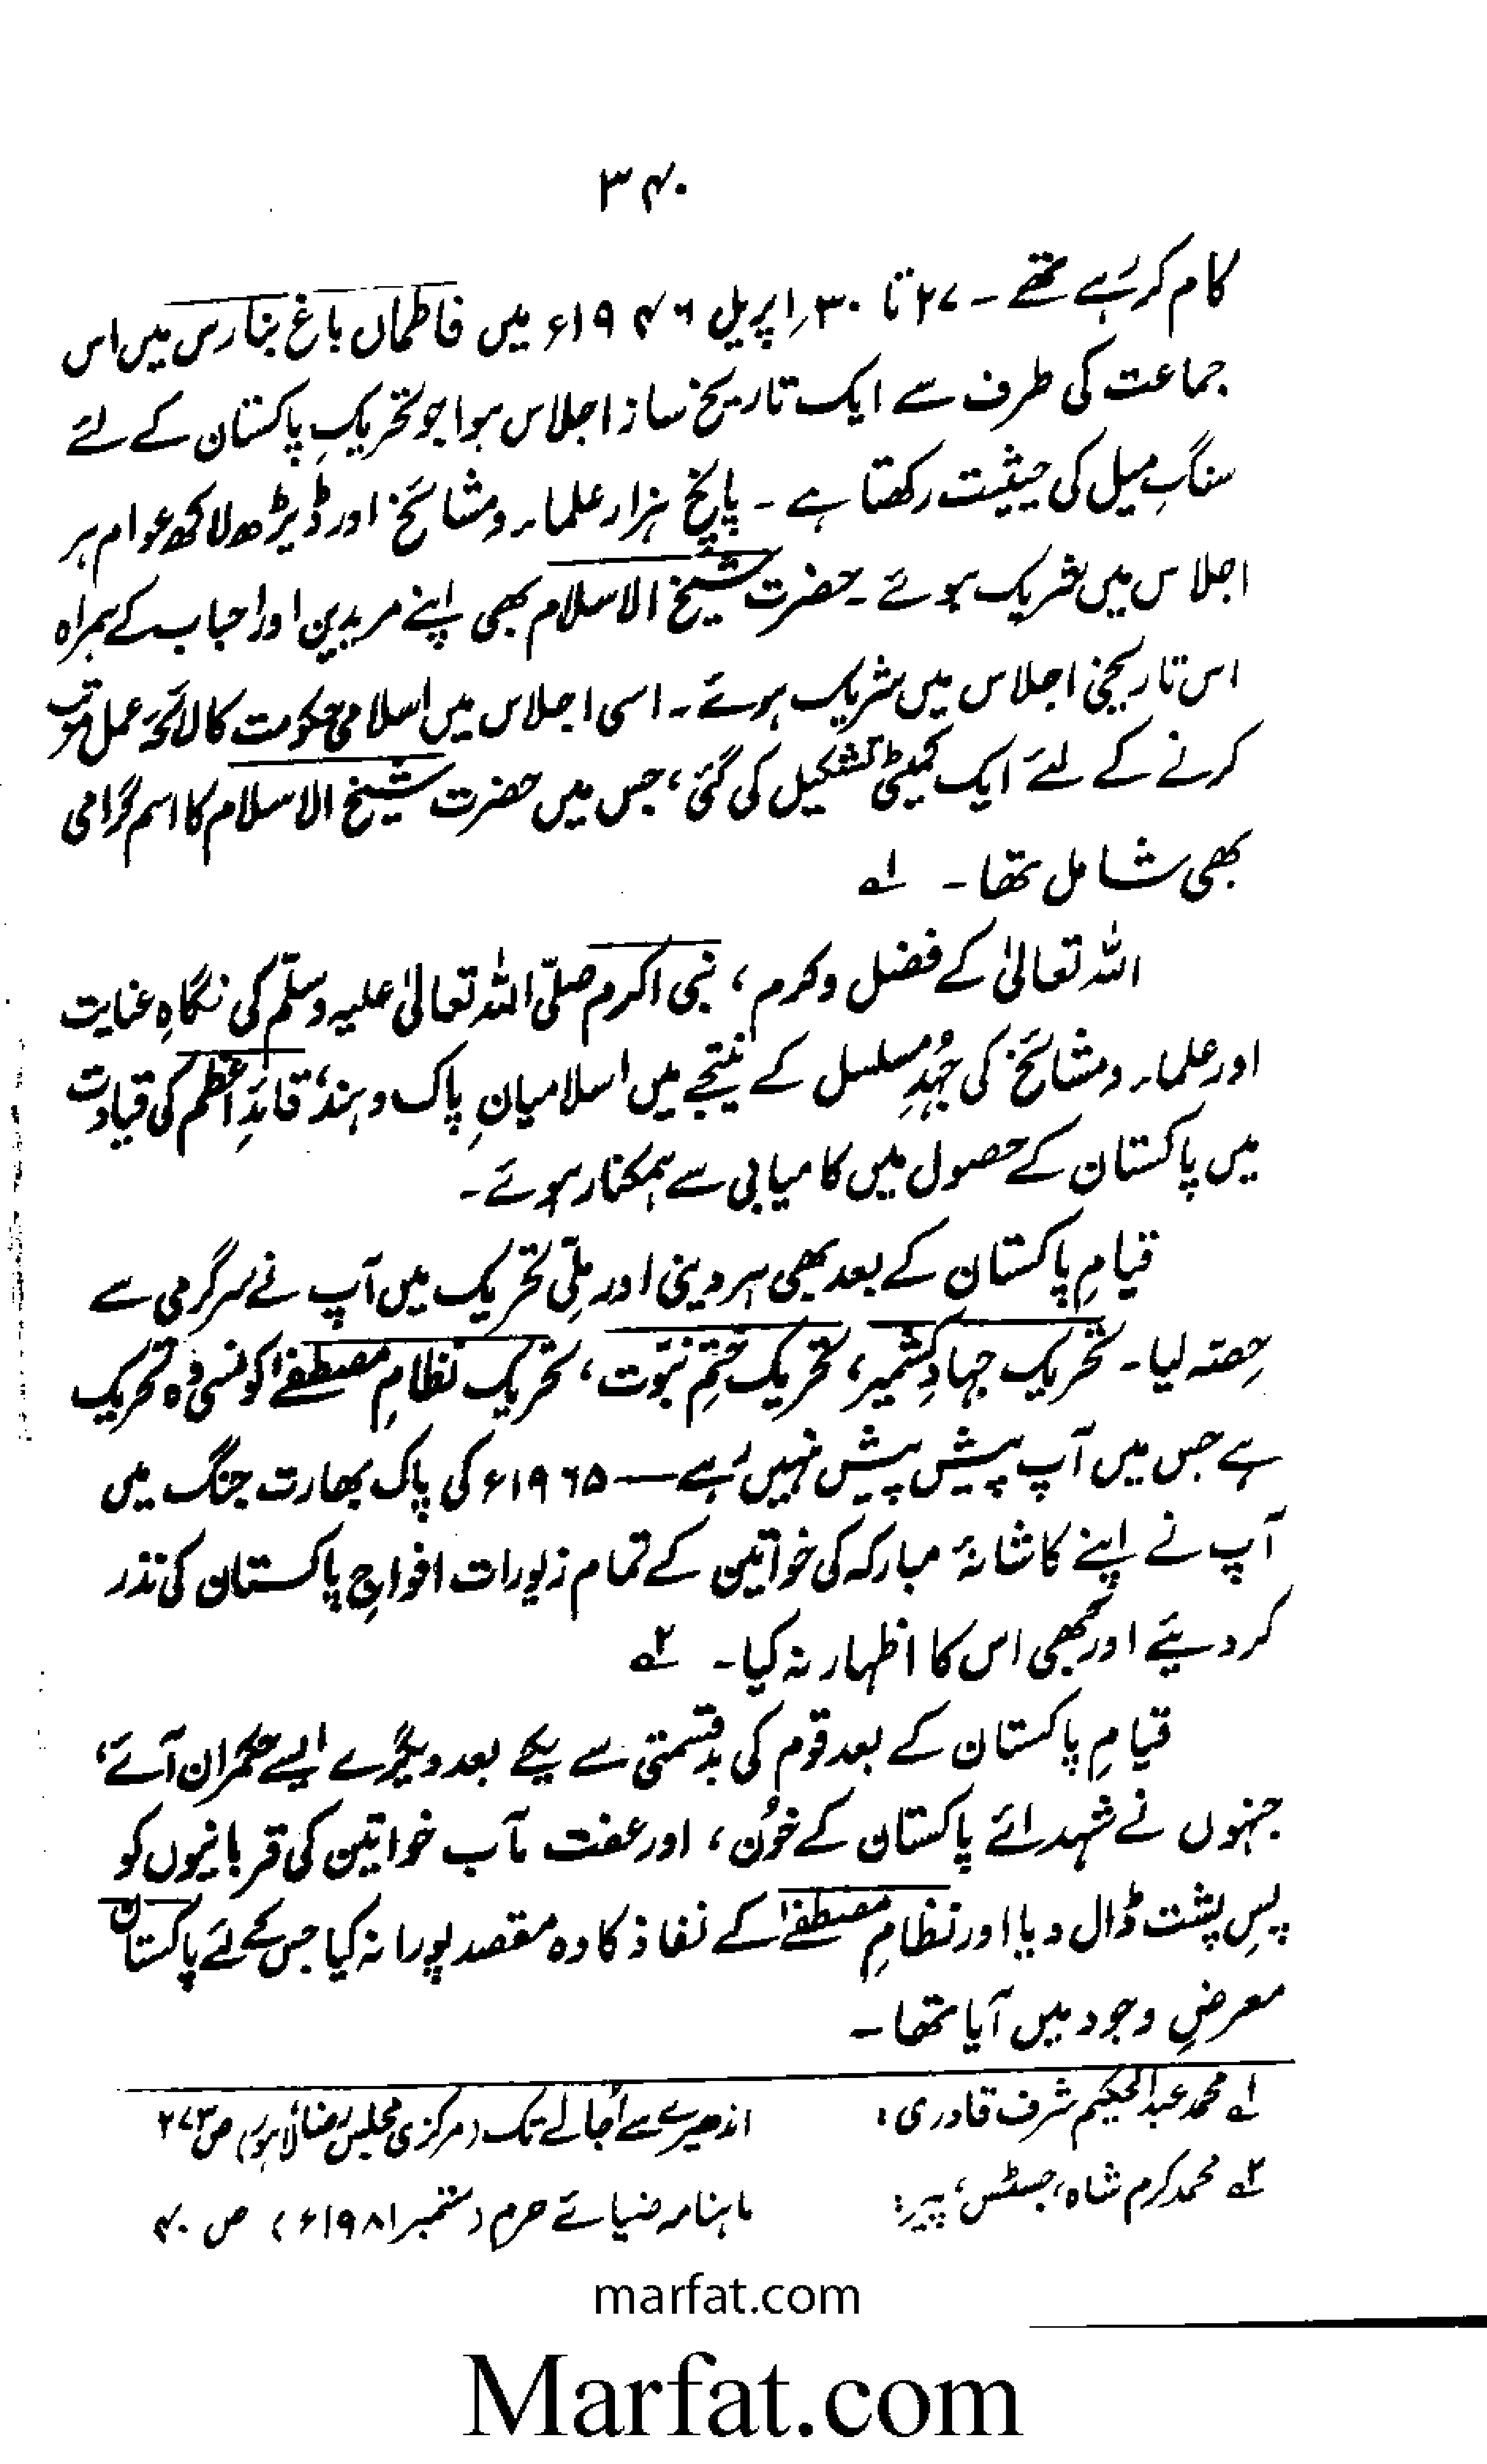 ۳۴۰
کام کر رہے تھے ۔ ۲۷ تا ۳۰ اپریل ۱۹۴۶ء میں فاطماں باغ بنارس میں اس
جماعت کی طرف سے ایک تاریخ ساز اجلاس ہوا جو تحریکِ پاکستان کے لئے
سنگِ میل کی حیثیت رکھتا ہے ۔ پانچ ہزار علماء و مشائخ اور ڈیڑھ لاکھ عوام ہر
اجلاس میں شریک ہوئے ۔ حضرت شیخ الاسلام بھی اپنے مریدین اور احباب کے ہمراہ
اس تاریخی اجلاس میں شریک ہوئے ۔ اسی اجلاس میں اسلامی حکومت کا لائحہ عمل مرتب
کرنے کے لئے ایک کمیٹی تشکیل کی گئی، جس میں حضرت شیخ الاسلام کا اسم گرامی
بھی شامل تھا ۔ ۱؎
اللہ تعالیٰ کے فضل و کرم ، نبی اکرم صلّی اللہ تعالیٰ علیہ وسلّم کی نگاہِ عنایت
اور علماء و مشائخ کی جُہدِ مسلسل کے نتیجے میں اسلامیانِ پاک و ہند، قائدِ اعظم کی قیادت
میں پاکستان کے حصول میں کامیابی سے ہمکنار ہوئے ۔
قیامِ پاکستان کے بعد بھی ہر دینی اور ملّی تحریک میں آپ نے سرگرمی سے
حصّہ لیا ۔ تحریک جہادِ کشمیر، تحریک ختمِ نبوّت ، تحریک نظامِ مصطفےٰ کونسی وہ تحریک
ہے جس میں آپ پیش پیش نہیں رہے ــــ ۱۹۶۵ء کی پاک بھارت جنگ میں
آپ نے اپنے کاشانۂ مبارکہ کی خواتین کے تمام زیورات افواجِ پاکستان کی نذر
کر دیئے اور کبھی اس کا اظہار نہ کیا ۔ ۲؎
قیامِ پاکستان کے بعد قوم کی بدقسمتی سے یکے بعد دیگرے ایسے حکمران آئے ،
جنہوں نے شہدائے پاکستان کے خُون ، اور عفت مآب خواتین کی قربانیوں کو
پسِ پشت ڈال دیا اور نظامِ مصطفےٰ کے نفاذ کا وہ مقصد پورا نہ کیا جس کے لئے پاکستان
معرضِ وجود میں آیا تھا ۔
۱؎ محمد عبدالحکیم شرف قادری : اندھیرے سے اُجالے تک (مرکزی مجلس رضا، لاہور) ص ۲۷۳
۲؎ محمد کرم شاہ، جسٹس، پیر : ماہنامہ ضیائے حرم (ستمبر ۱۹۸۱ء) ص ۴۰
marfat.com
Marfat.com